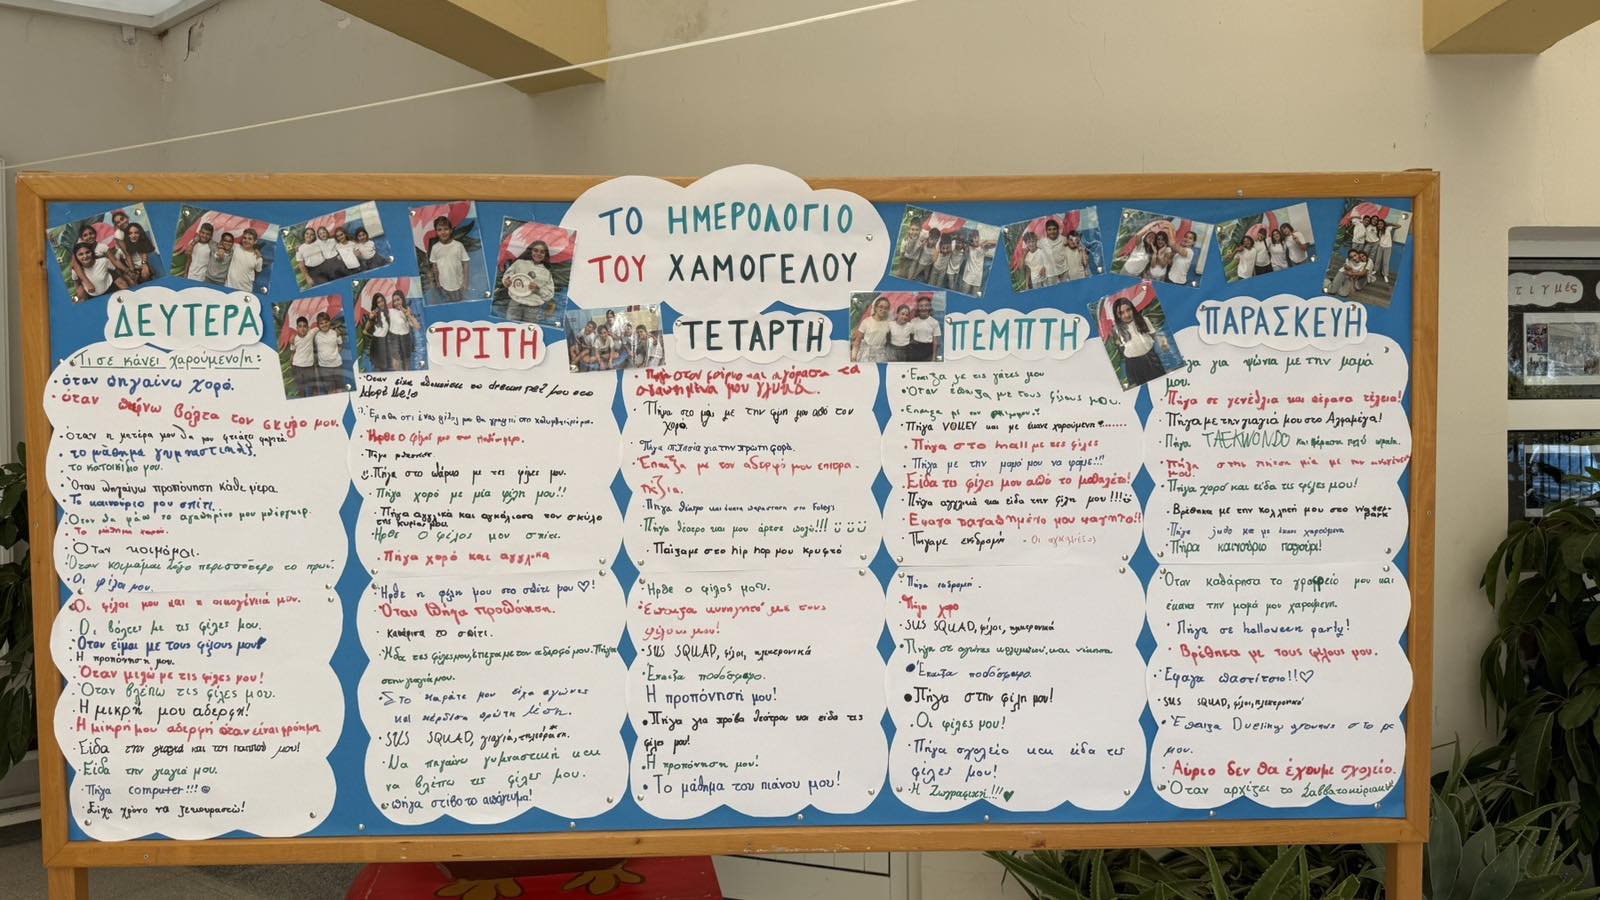 ΤΟ ΗΜΕΡΟΛΟΓΙΟ
ΤΟΥ ΧΑΜΟΓΕΛΟΥ
ΔΕΥΤΕΡΑ
Τι σε κάνει χαρούμενο/η:
· όταν πηγαίνω χορό.
· όταν βόλτα τον σκύλο μου.
· όταν η μητέρα μου θα μου φτιάξει φαγητό.
· το μάθημα γυμναστικής.
· το κατοικίδιο μου.
· Όταν πηγαίνω προπόνηση κάθε μέρα
· Το καινούριο μου σπίτι.
· Όταν θα φάω το αγαπημένο μου μπέργκερ.
· Το μάθημα χορού.
· Όταν κοιμάμαι.
· Όταν κοιμάμαι λίγο περισσότερο το πρωί.
· Οι φίλοι μου.
· Οι φίλοι μου και η οικογένειά μου.
· Οι βόλτες με τις φίλες μου.
· Όταν είμαι με τους φίλους μου
· Η προπόνηση μου.
· Όταν μιλώ με τις φίλες μου!
· Όταν βλέπω τις φίλες μου.
· Η μικρή μου αδερφή!
· Η μικρή μου αδερφή όταν είναι φρόνιμη
· Είδα την γιαγιά και τον παππού μου!
· Είδα την γιαγιά μου.
· Πήγα computer!!!
· Είχα χρόνο να ξεκουραστώ!
ΤΡΙΤΗ
· Όταν είχα dream pet μου στο
Adopt Me!
· Έμαθα ότι ένας φίλος μου θα γραφτεί στο κολυμβητήριο μου.
· Ήρθε ο φίλος μου στο ποδόσφαιρο.
· Πήγα
· Πήγα στο πάρκο με τις φίλες μου.
· Πήγα χορό με μία φίλη μου!!
· Πήγα αγγλικά και αγκάλιασα τον σκύλο
της κυρίας μου.
· Ήρθε ο φίλος μου σπίτι.
· Πήγα χορό και αγγλικά
· Ήρθε η φίλη μου στο σπίτι μου ♡!
· Όταν πήγα προπόνηση.
· Καθάρισα το σπίτι.
· Είδα τις φίλες μου, έπαιξα με τον αδερφό μου. Πήγα
στην γιαγιά μου.
· Στο καράτε μου είχα αγώνες
και κέρδισα πρώτη θέση.
· SUS SQUAD, γιαγιά, τηλεόραση.
· Να πηγαίνω γυμναστική και
να βλέπω τις φίλες μου.
· Πήγα στίβο το απόγευμα!
ΤΕΤΑΡΤΗ
· Πήγα στον φούρνο και αγόρασα τα
αγαπημένα μου γλυκά.
· Πήγα στο με την φίλη μου από τον
χορό.
· Πήγα ιππασία για την πρώτη φορά.
· Έπαιξα με τον αδερφό μου επιτρα-
πέζια.
· Πήγα θέατρο και έκανα παράσταση στο
· Πήγα θέατρο και μου άρεσε πολύ!!!
· Παίζαμε στο hip hop μου κρυφτό
· Ήρθε ο φίλος μου.
· Έπαιξα κυνηγητό με τους
φίλους μου!
· SUS SQUAD, φίλοι, ηλεκτρονικά
· Έπαιξα ποδόσφαιρο.
· Η προπόνηση μου!
· Πήγα για πρόβα θεάτρου και είδα τις
φίλες μου!
· Η προπόνηση μου!
· Το μάθημα του πιάνου μου!
ΠΕΜΠΤΗ
· Έπαιξα με τις γάτες μου
· Όταν έπαιξα με τους φίλους μου.
· Έπαιξα με τον
· Πήγα VOLLEY και με έκανε χαρούμενη
· Πήγα στο mall με τις φίλες
· Πήγα με την μαμά μου να φάμε!!!
· Είδα τις φίλες μου από το μπαλέτο!
· Πήγα αγγλικά και είδα την φίλη μου!!!
· Έφαγα το αγαπημένο μου φαγητό!!
· Πήγαμε εκδρομή
· Οι αγκαλιές
· Πήγα εκδρομή.
· Πήγα χορό
· SUS SQUAD, φίλοι, ηλεκτρονικά
· Πήγα σε αγώνες κολυμπιού, και νίκησα
· Έπαιξα ποδόσφαιρο.
· Πήγα στην φίλη μου!
· Οι φίλες μου!
· Πήγα σχολείο και είδα τις
φίλες μου!
· Η Ζωγραφική!!!
ΠΑΡΑΣΚΕΥΗ
Πήγα για ψώνια με την μαμά
μου.
· Πήγα σε γενέθλια και πέρασα τέλεια!
· Πήγα με την γιαγιά μου στο
· Πήγα TAEKWONDO και πέρασα πολύ ωραία.
· Πήγα στης πίτσα μία με την οικογένεια
μου!
· Πήγα χορό και είδα τις φίλες μου!
· Βρέθηκα με την κολλητή μου στο water-
park
· Πήγα judo και με έκανε χαρούμενη
· Πήρα καινούριο παγούρι!
· Όταν καθάρισα το γραφείο μου και
έκανα την μαμά μου χαρούμενη.
· Πήγα σε halloween party!
· Βρέθηκα με τους φίλους μου.
· Έφαγα παστίτσιο!!♡
· SUS SQUAD, φίλοι, ηλεκτρονικά
· Έπαιξα Dueling grounds στο pc
μου.
· Αύριο δεν θα έχουμε σχολείο.
· Όταν αρχίζει το Σαββατοκύριακο